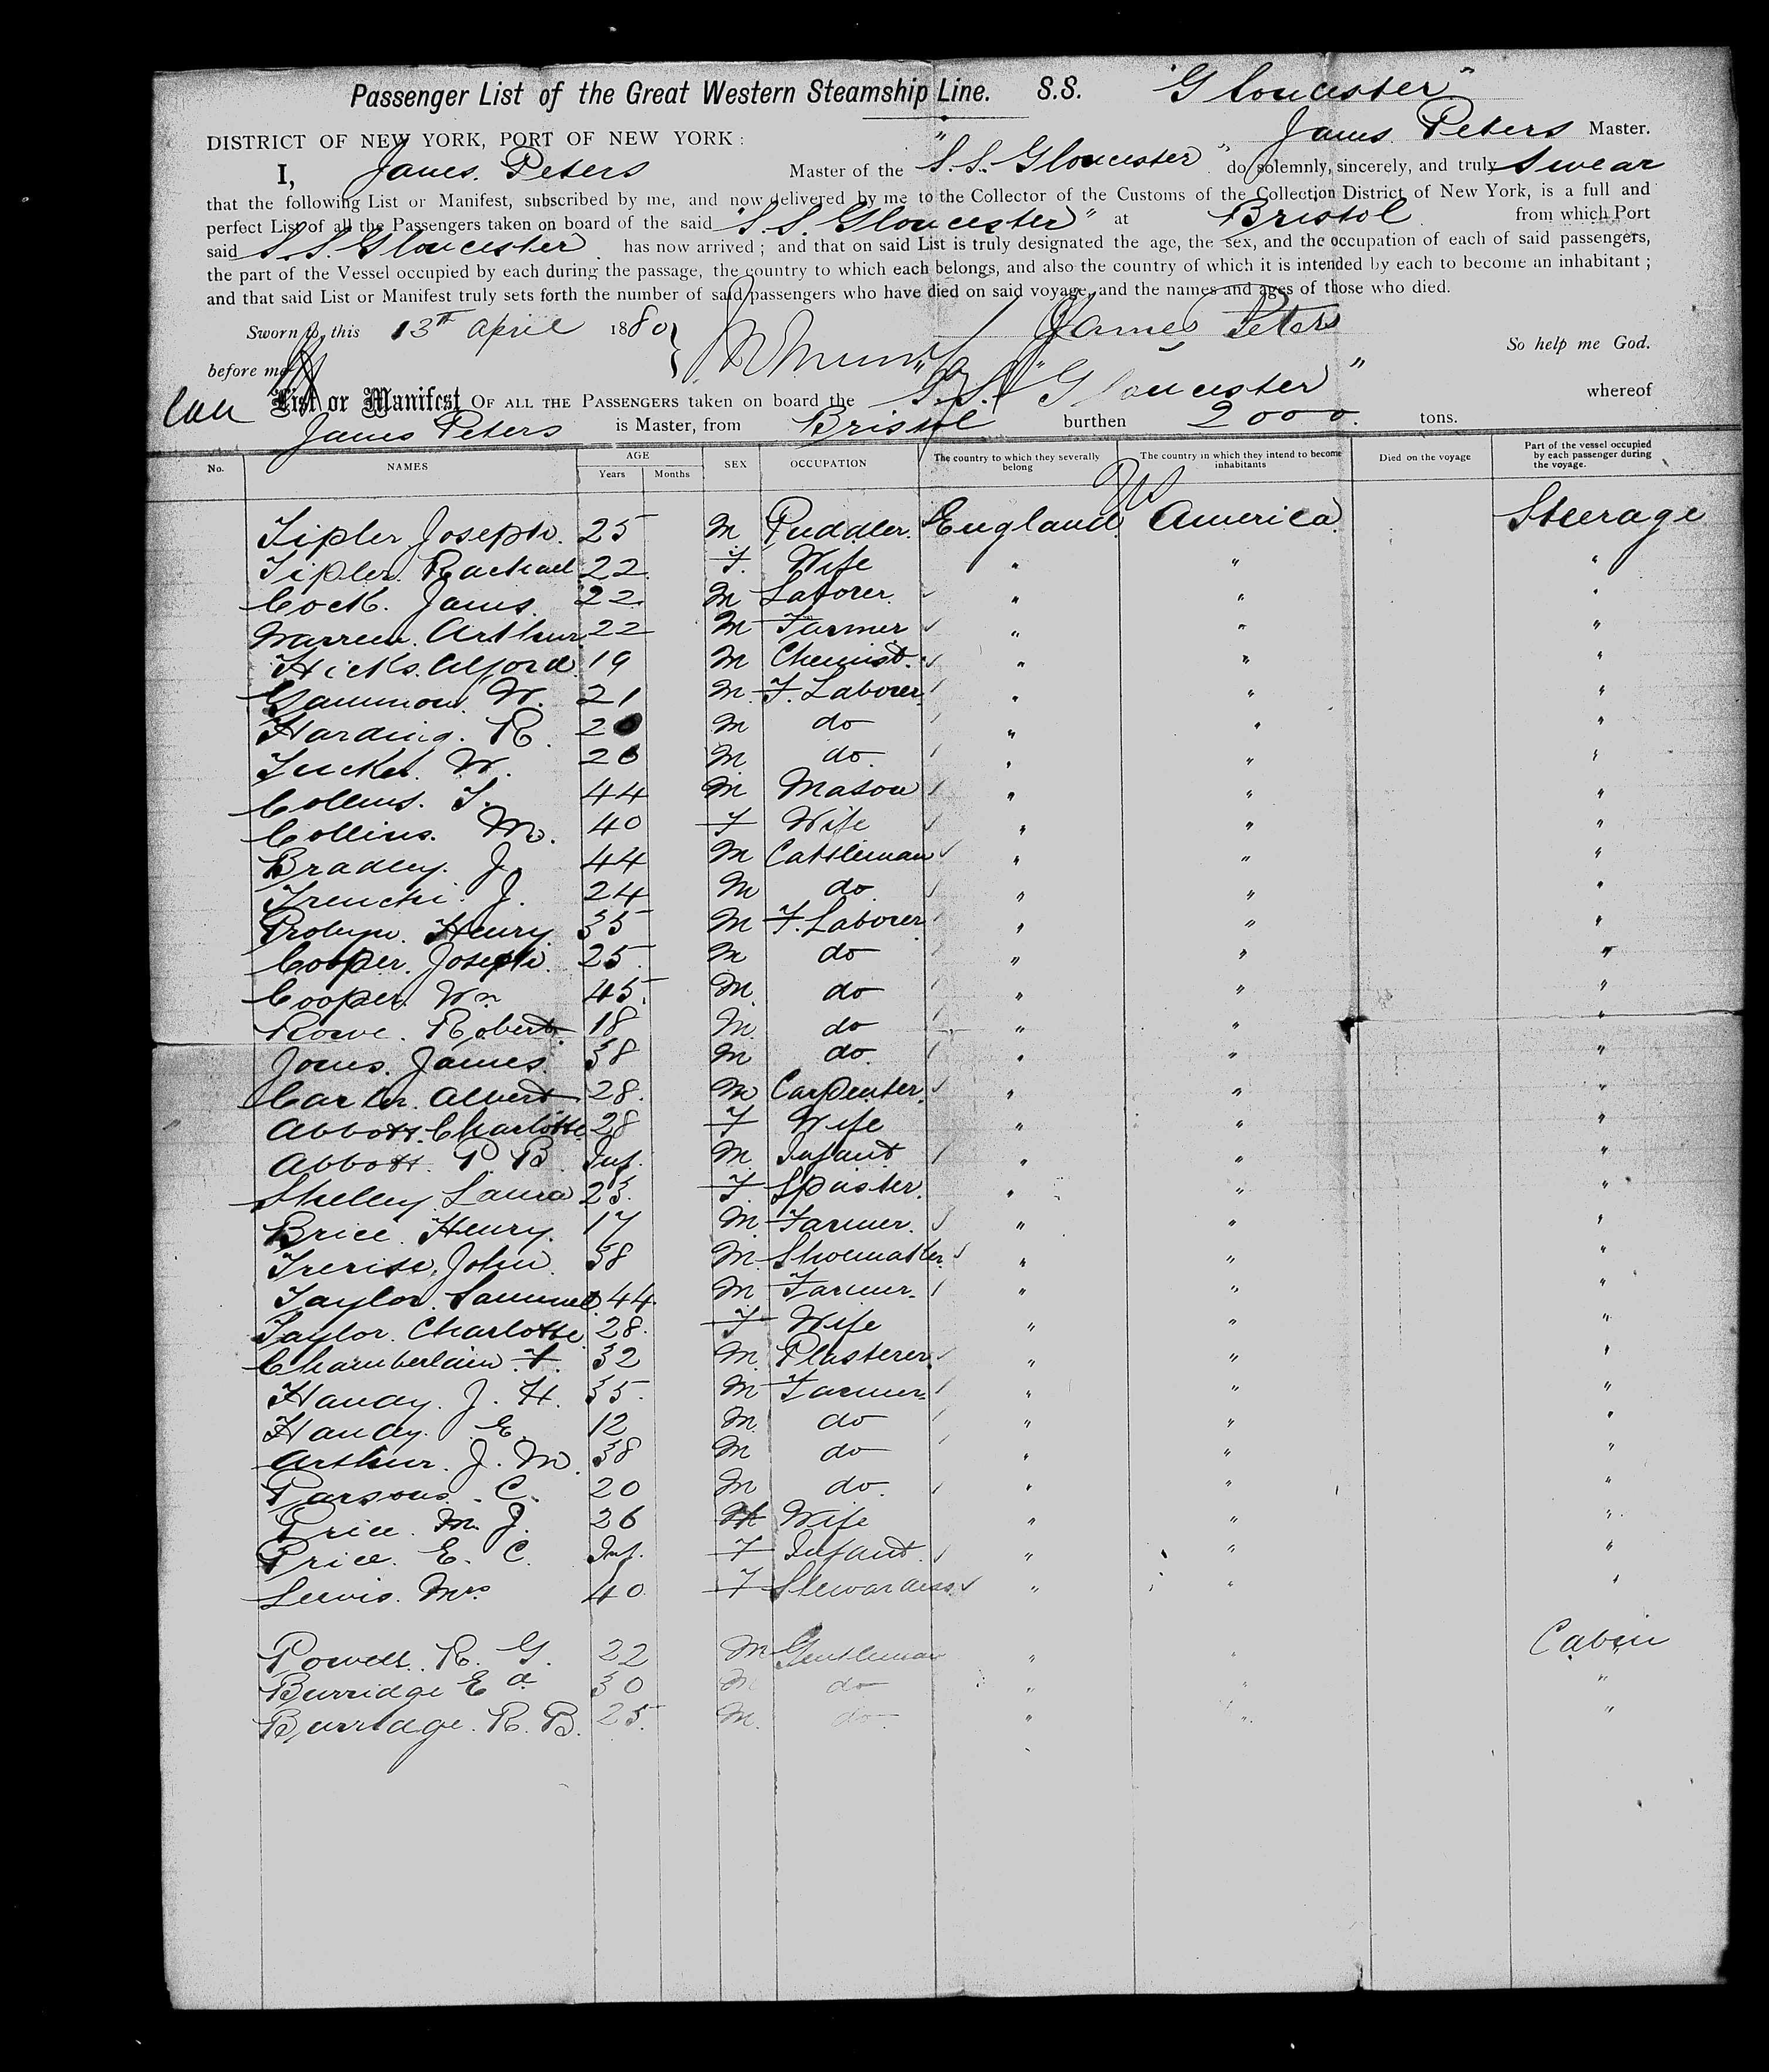 Passenger List of the Great Western Steamship Line. S.S. "Gloucester"
James Peters Master.
DISTRICT OF NEW YORK, PORT OF NEW YORK :
I, James Peters Master of the "S.S. Gloucester" do solemnly, sincerely, and truly Swear
that the following List or Manifest, subscribed by me, and now delivered by me to the Collector of the Customs of the Collection District of New York, is a full and
perfect List of all the Passengers taken on board of the said "S.S. Gloucester" at Bristol from which Port
said S.S. Gloucester has now arrived ; and that on said List is truly designated the age, the sex, and the occupation of each of said passengers,
the part of the Vessel occupied by each during the passage, the country to which each belongs, and also the country of which it is intended by each to become an inhabitant ;
and that said List or Manifest truly sets forth the number of said passengers who have died on said voyage, and the names and ages of those who died.
Sworn to, this 13th April 1880 James Peters
So help me God.
before me
List or Manifest OF ALL THE PASSENGERS taken on board the "S.S. Gloucester" whereof
James Peters is Master, from Bristol burthen 2000. tons.
No. NAMES AGE Years Months SEX OCCUPATION The country to which they severally belong The country in which they intend to become inhabitants Died on the voyage Part of the vessel occupied by each passenger during the voyage.
Tipler Joseph. 25 M Puddler. England America. Steerage
Tipler. Rachael 22. F. Wife " " "
Cock. James. 22. M Laborer. " " "
Warren. Arthur 22 M Farmer " " "
Hicks. Alford. 19 M Chemist. " " "
Gammon. W. 21 M. F. Laborer. " " "
Harding. R. M do " " "
Tucker. W. 26 M do. " " "
Collins. T. 44 M Mason " " "
Collins. M. 40 F Wife " " "
Bradley. J. 44 M Cattleman " " "
J. 24 M do " " "
Probyn. Henry. 35 M F. Laborer " " "
Cooper. Joseph. 25. M do " " "
Cooper. Wm 45. M. do " " "
Rowe. Robert. 18 M. do " " "
Jones. James. 38 M do. " " "
Carter. Albert 28. M Carpenter. " " "
Abbott. Charlotte 28 F Wife " " "
Abbott. P. B. Inf. M. Infant " " "
Shelley Laura 23. F. Spister. " " "
Brice. Henry. 17 M. Farmer. " " "
Trerise. John. 38 M. Shoemaker. " " "
Taylor. Samuel. 44. M Farmer. " " "
Taylor. Charlotte 28. F Wife " " "
Chamberlain. F. 32 M. Plasterer. " " "
Handy. J. H. 35. M Farmer. " " "
Handy. E. 12 M. do " " "
Arthur. J. M. 38 M do " " "
Parsons. C. 20 M do. " " "
Price. M. J. 26 Wife " " "
Price. E. C. Inf. F Infant. " " "
Lewis. Mrs 40. F Stewardess. " " "
Powell. R. G. 22 M Gentleman " " Cabin
Burridge Ed 30 M do " " "
Burridge. R. B. 25. M. do " " "